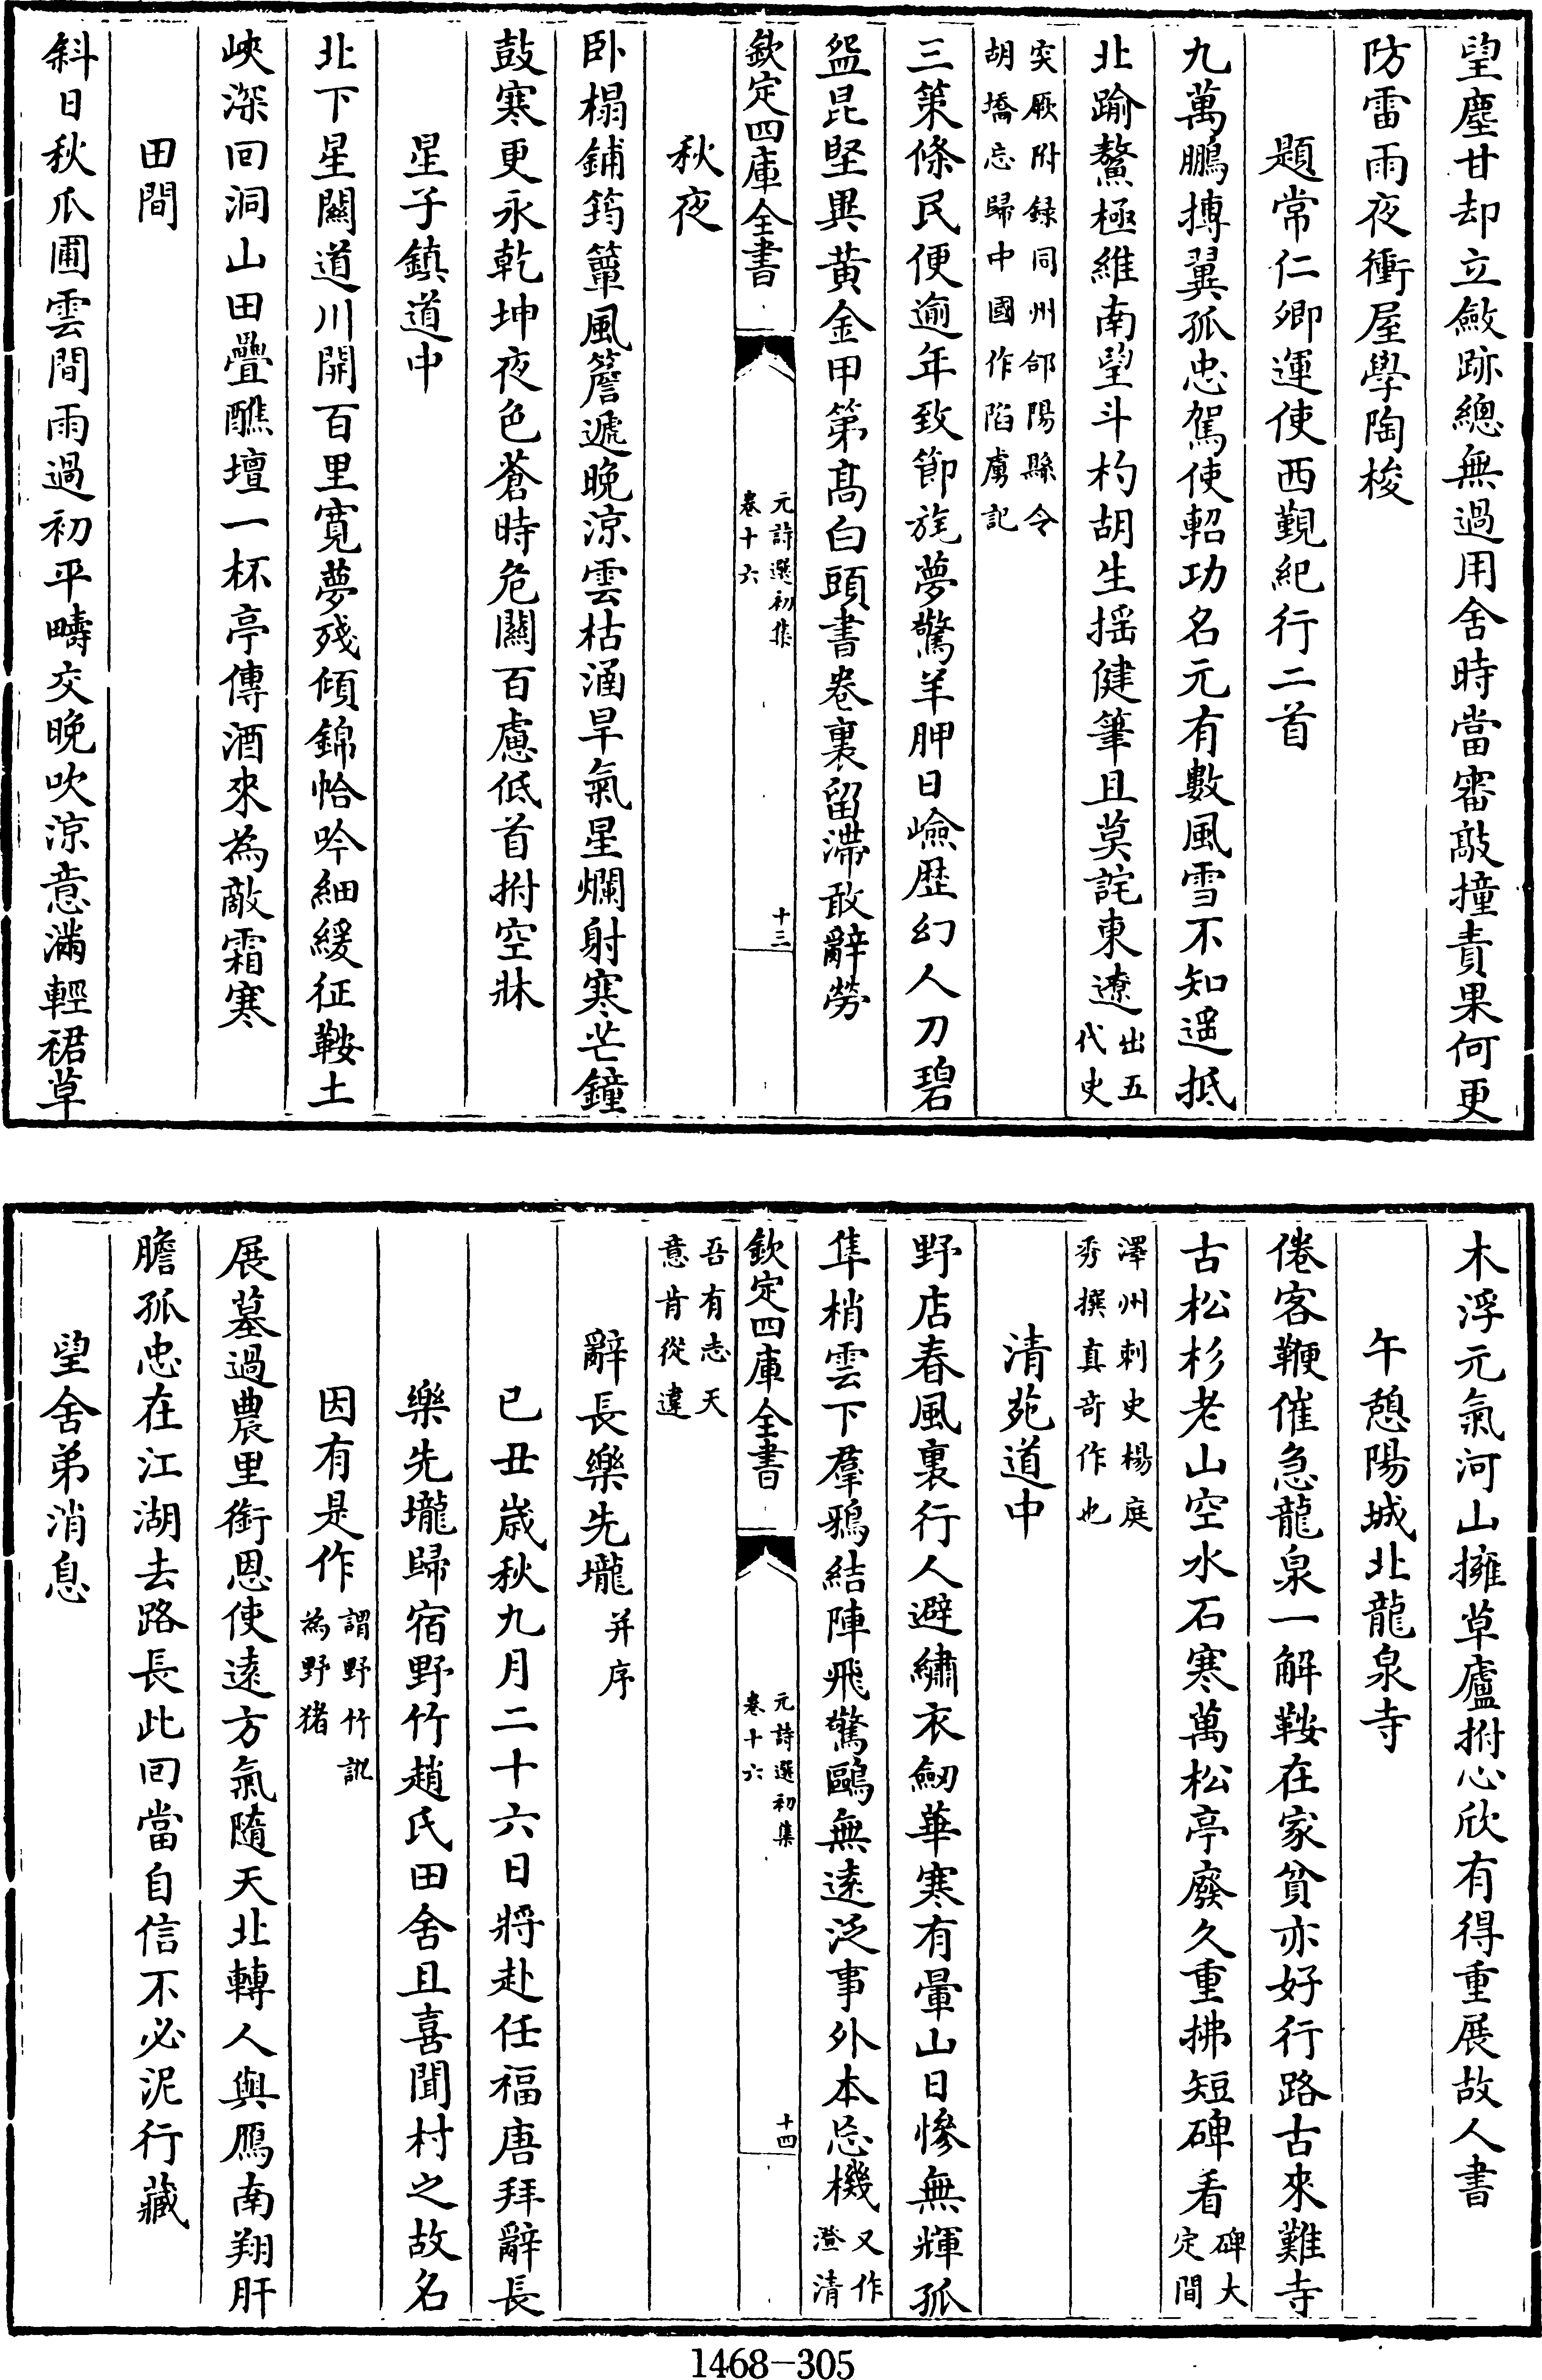 望塵甘却立斂跡總無過用舍時當審敲撞責果何更
防雷雨夜衝屋學陶梭
題常仁卿運使西覲紀行二首
九萬鵬摶翼孤忠駕使軺功名元有數風雪不知遥抵
北踰鰲極維南望斗杓胡生揺健筆且莫詫東遼出五代史
突厥附録同州郃陽縣令
胡嶠忘歸中國作陷虜記
三策條民便逾年致節旄夢驚羊胛日嶮歴幻人刀碧
盌昆堅異黄金甲第髙白頭書卷裏留滯敢辭勞
欽定四庫全書 元詩選初集 卷十六 十三
秋夜
卧榻鋪筠簟風簷遞晚涼雲枯涵旱氣星爛射寒芒鐘
鼓寒更永乾坤夜色蒼時危關百慮低首拊空牀
星子鎮道中
北下星關道川開百里寛夢殘傾錦帢吟細緩征鞍土
峽深回洞山田疊醮壇一杯亭傳酒來為敵霜寒
田間
斜日秋爪圃雲間雨過初平疇交晚吹涼意滿輕裾草
木浮元氣河山擁草廬拊心欣有得重展故人書
午憩陽城北龍泉寺
倦客鞭催急龍泉一解鞍在家貧亦好行路古來難寺
古松杉老山空水石寒萬松亭廢久重拂短碑看碑大定間
澤州刺史楊庭
秀撰真奇作也
清苑道中
野店春風裏行人避繡衣劒華寒有暈山日慘無輝孤
隼梢雲下羣鴉結陣飛驚鷗無逺泛事外本忘機又作澄清
欽定四庫全書 元詩選初集 卷十六 十四
吾有志天
意肯從違
辭長樂先壠并序
已丑歳秋九月二十六日將赴任福唐拜辭長
樂先壠歸宿野竹趙氏田舍且喜聞村之故名
因有是作謂野竹訛為野猪
展墓過農里銜恩使逺方氣随天北轉人與鴈南翔肝
膽孤忠在江湖去路長此回當自信不必泥行藏
望舍弟消息
1468-305